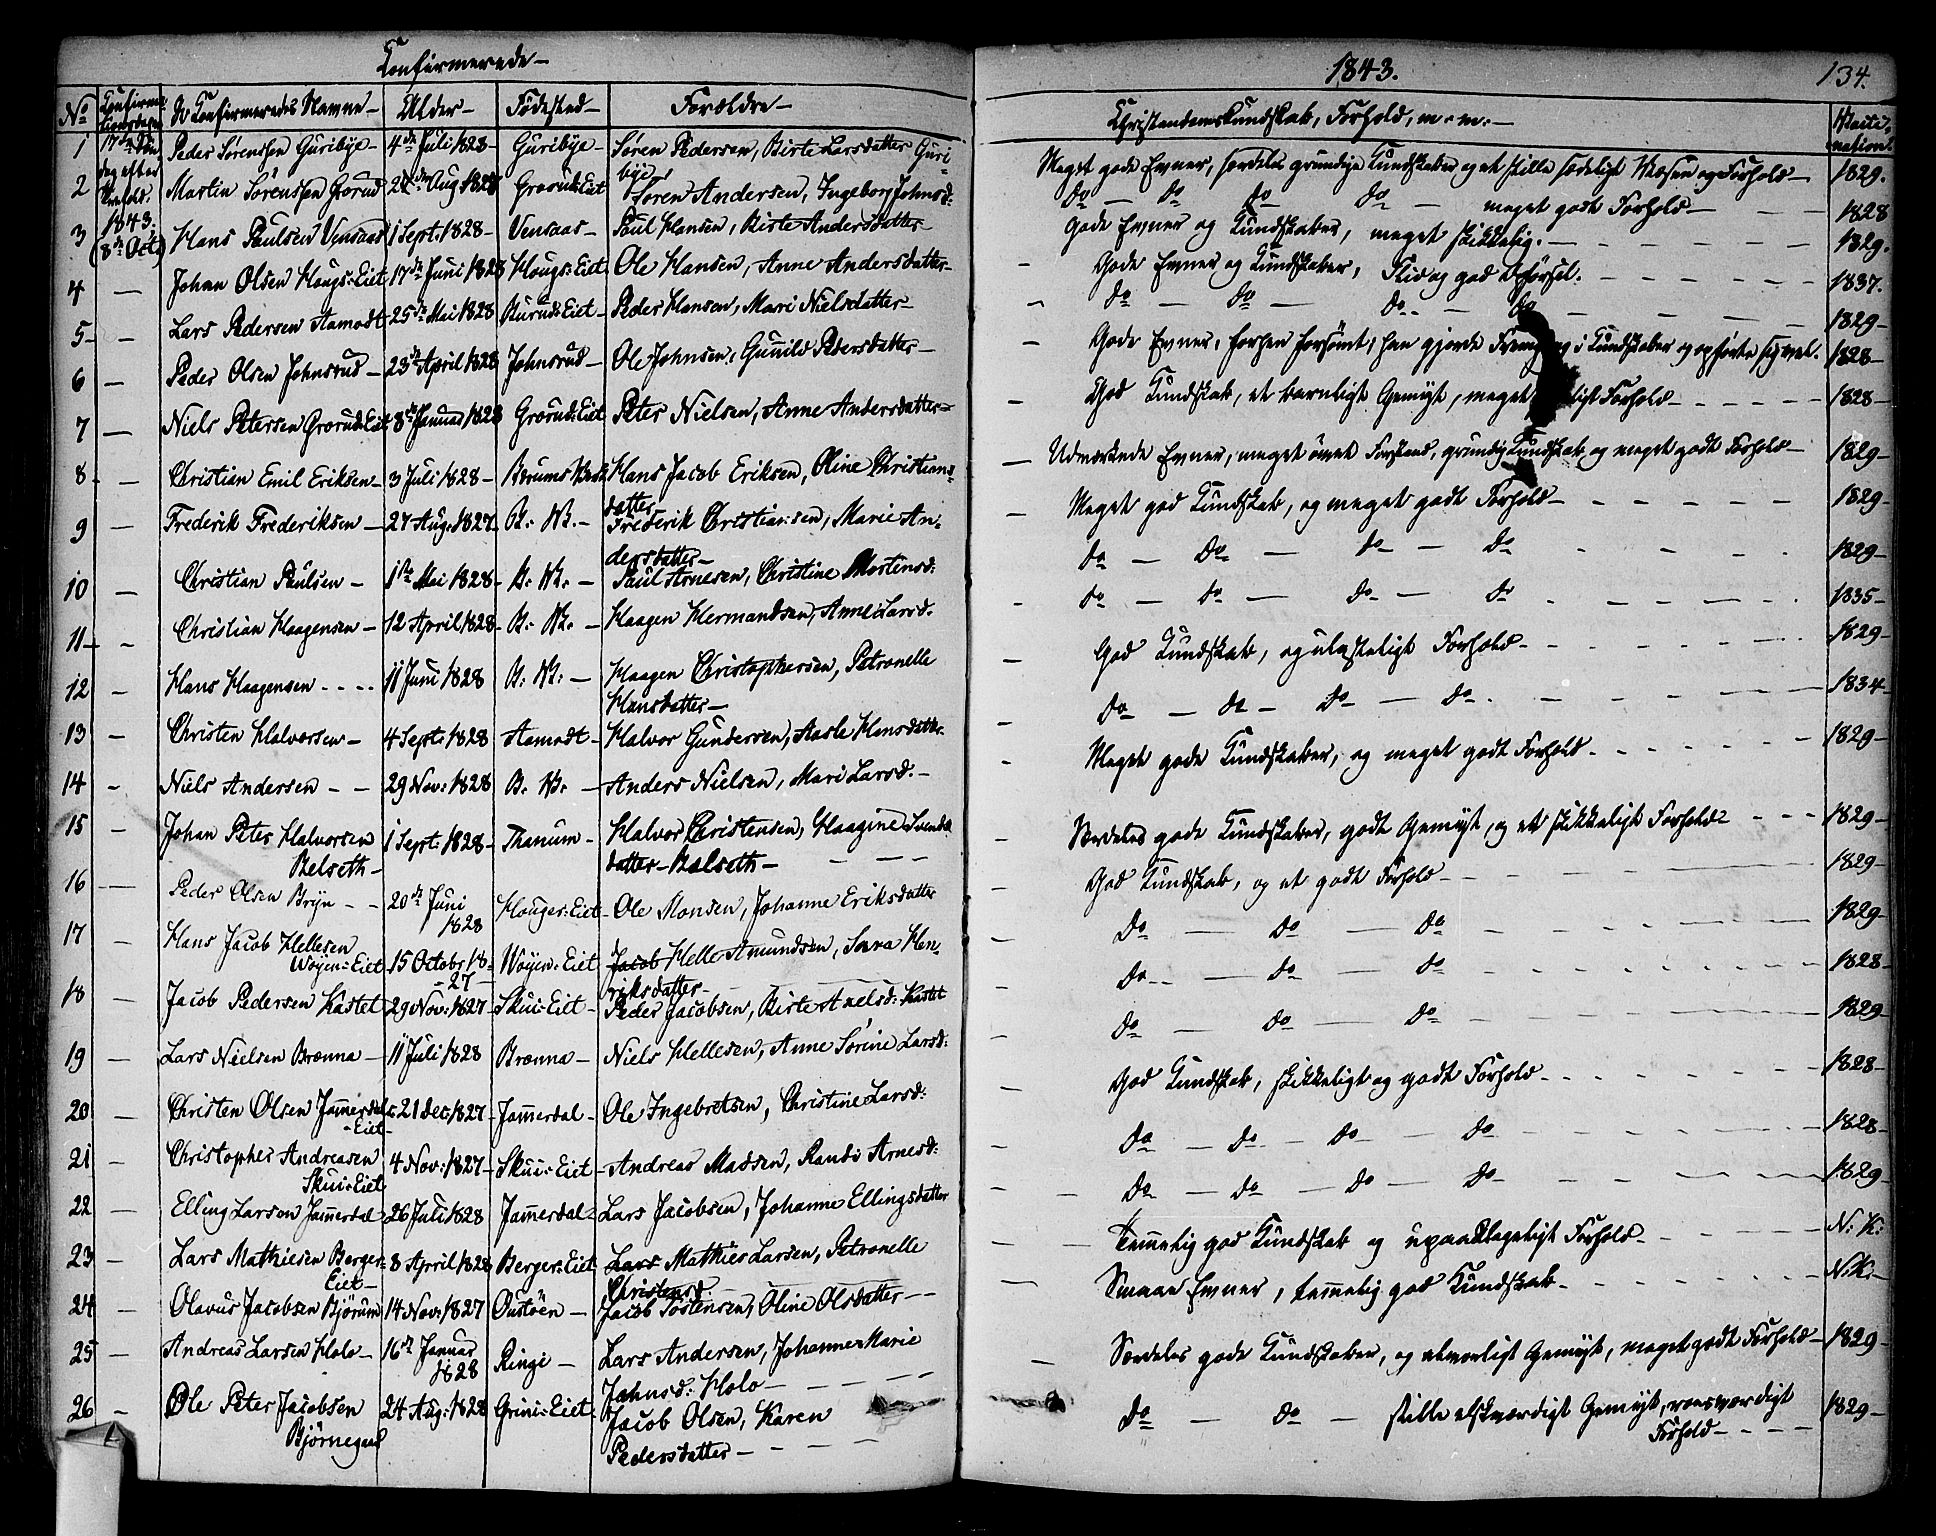 Confirmerede –
No Confirma- tionsdagen De Confirmeredes Navne – Alder – Fødested – Forældre –
1 17de Søn- Peder Sörensen Guribye – 4de Juli 1828 – Guribye – Søren Pedersen, Birte Larsdatter Guri-
dag efter bye –
2 Trefold. Martin Sörensen Grorud Aug 1828 Grorud-Eiet Søren Andersen, Ingeborg Johnsd:
1843.
3 (8de Octb) Hans Paulsen Vensaas 1 Sept: 1828 – Vensaas – Paul Hansen, Birte Andersdatter –
4 — Johan Olsen Hougs-Eiet 17de Juni 1828 Hougs-Eiet Ole Hansen, Anne Andersdatter –
5 – – Lars Pedersen Aamodt 25de Mai 1828 Burud-Eiet – Peder Hansen, Mari Nielsdatter –
6 — Peder Olsen Johnsrud – 23de April 1828 Johnsrud – Ole Johnsen, Gunild Pedersdatter –
7 — Niels Petersen Grorud-Eiet 8de Januar 1828 Grorud-Eiet Peter Nielsen, Anne Andersdatter –
8 – — Christian Emil Eriksen – 3 Juli 1828 – Bærums Verk Hans Jacob Eriksen, Oline Christians-
datter
9 — Frederik Frederiksen – 27 Aug: 1827 – B: V: – Frederik Christiansen, Marie An-
dersdatter –
10 — Christian Paulsen – 1ste Mai 1828 – B: V: – Paul Arnesen, Christine Mortensd:
11 – – Christian Haagensen – 12 April 1828 – B: V: – Haagen Hermandsen, Anne Larsd:
12 – Hans Haagensen - - - - 11 Juni 1828 B: V: – Haagen Christophersen, Petronelle
Hansdatter –
13 – Christen Halvorsen – 4 Sept: 1828 Aamodt – Halvor Gundersen, Aasle Hansdatter
14 – Niels Andersen – – 29 Nov: 1828 B: V: – Anders Nielsen, Mari Larsd: –
15 – Johan Peter Halvorsen 1 Sept: 1828 – Thanum – Halvor Christensen, Haagine Svends
Belseth – datter – Balseth – – – –
16 — Peder Olsen Bryn – – 20de Juni Houger-Eiet – Ole Monsen, Johanne Eriksdatter
1828
17 – Hans Jacob Hellesen
Wøyen-Eiet 15 Octobr. 18- Wøyen-Eiet Jacob Helle Amundsen, Sara Hen-
– 27 – riksdatter – –
18 – Jacob Pedersen Kastet 29 Nov: 1827 – Skui-Eiet – Peder Jacobsen, Birte Axelsd: Kastet
19 — Lars Nielsen Brenna – 11 Juli 1828 Brenna – Niels Hellesen, Anne Sörine Larsd:
20 — Christen Olsen Jammerdal- 21 Dec 1827 – Jammerdal – Ole Ingebretsen, Christine Larsd:
– Eiet –
21 – Christopher Andreasen 4 Nov: 1827 – Skui-Eiet – Andreas Madsen, Randi Arnesd:
Skui-Eiet
22 — Elling Larsen Jammerdal 26 Juli 1828 Jammerdal – Lars Jacobsen, Johanne Ellingsdatter
23 — Lars Mathiesen Berger- 8 April 1828 Berger-Eiet – Lars Mathies Larsen, Petronelle
Eiet – Christensd:
24 – Olavus Jacobsen Bjørum 14 Nov: 1827 Oustøen – Jacob Tostensen, Oline Olsdatter – –
25 – Andreas Larsen Holo – 16de Januar Ringi – Lars Andersen, Johanne Marie
1828 Johnsd: Holo – – – –
26 – Ole Peter Jacobsen 24 Aug: 1828 Grini-Eiet – Jacob Olsen, Karen
Bjørnegaal Pedersdatter – – – –
1843. 134.
Christendomskundskab, Forhold, m. m. – Vacci- nation.
Meget gode Evner, særdeles grundige Kundskaber og et stille sædeligt Væsen og Forhold – 1829.
do – do do do – meget godt Forhold – – – 1828
Gode Evner og Kundskaber, meget skikkelig. – – – – 1829.
– Gode Evner og Kundskaber, Flid og god Opførsel. – – – – 1837.
– do – do – do – do – – – 1829 –
– Gode Evner, forhen forsömt, han gjorde Fremg i Kundskaber og opførte sig vel. 1828 –
– God Kundskab, et barnligt Gemyt, meget ligt Forhold – – – – 1828 –
— Udmærkede Evner, meget øvet Forstand, grundig Kundskab og meget godt Forhold – 1829 –
– Meget god Kundskab, og meget godt Forhold – – – – 1829 –
do – do – do – do – – – 1829 –
– do – do – do – do – – – 1835 –
— God Kundskab, og ulasteligt Forhold – – – – 1829 –
– do – do – do – do – – – 1834 –
– Meget gode Kundskaber, og meget godt Forhold – – – – 1829 –
– Særdeles gode Kundskaber, godt Gemyt, og et skikkeligt Forhold – – – 1829 –
– God Kundskab, og et godt Forhold – – – – 1829 –
– do – do – do – – – 1829 –
– do – – do – do – – – 1828 –
– do – do – do – – – 1829 –
– God Kundskab, skikkeligt og godt Forhold – – – – 1828 –
– do – do – do – do – – – 1828 –
– – do – do – do – do – – – 1829 –
– – Temmelig god Kundskab og upaaklageligt Forhold – – – – N: K:
— Smaae Evner, temmelig god Kundskab – – – – N: K: –
– Særdeles gode Kundskaber, og alvorligt Gemyt, meget godt Forhold – 1829 –
do – do – stille elskværdigt Gemyt, roesværdigt 1829 –
Forhold – – – –